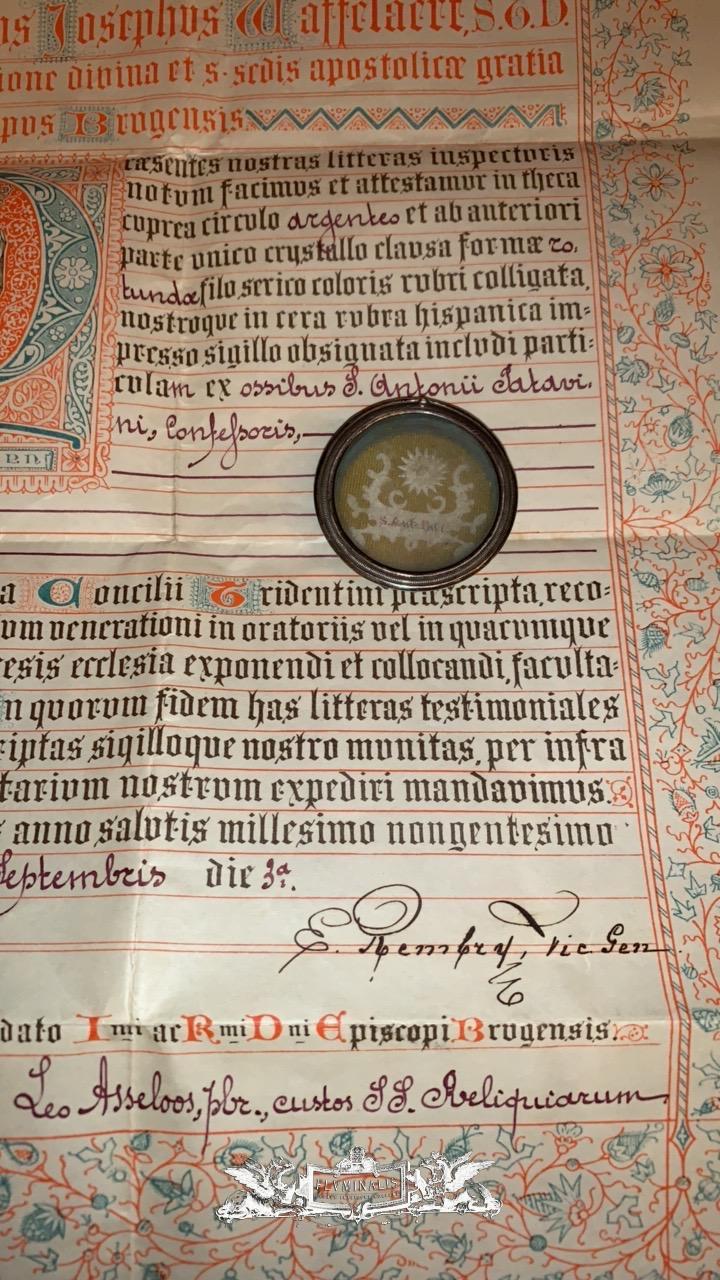 ns Josephus Waffelaert, S.T.D.
ione divina et s. sedis apostolicæ gratia
pvs Brvgensis
ræsentes nostras litteras inspectvris
notvm facimvs et attestamvr in theca
cvprea circvlo argenteo et ab anteriori
parte vnico crystallo clavsa formæ ro,
tundæ filo serico coloris rvbri colligata,
nostroqve in cera rvbra hispanica im=
presso sigillo obsignata inclvdi parti=
cvlam ex ossibus S. Antonii Patavi,
ni, Confessoris,
a Concilii Tridentini præscripta, reco=
vm venerationi in oratoriis vel in qvacvmqve
esis ecclesia exponendi et collocandi, facvlta=
n qvorvm fidem has litteras testimoniales
riptas sigilloqve nostro mvnitas, per infra
tarivm nostrvm expediri mandavimvs.
anno salvtis millesimo nongentesimo
Septembris die 3ª.
E. Rembry, Vic. Gen
dato Imi ac Rmi Dni Episcopi Brvgensis:
Leo Asseloos, pbr., custos SS. Reliquiarum
FLVMINALIS